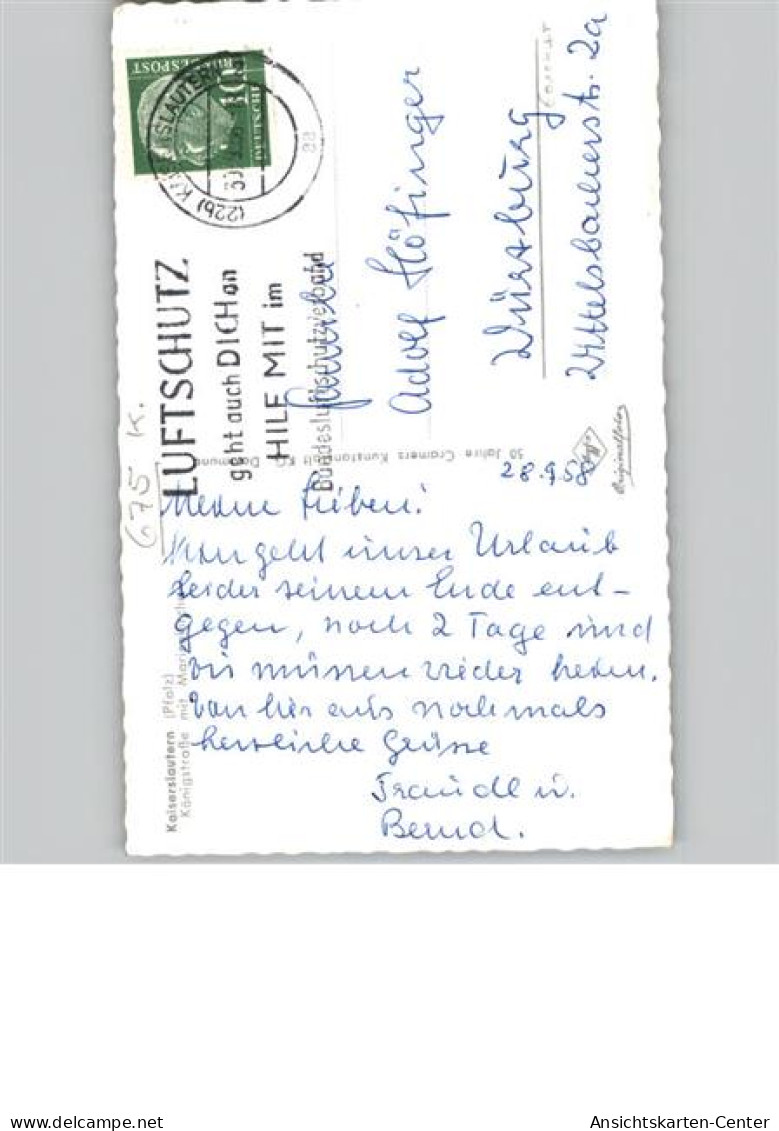 BUNDESPOST
10
DEUTSCHE
(22b) KAISERSLAUTERN
LUFTSCHUTZ
geht auch DICH an
HILF MIT im
Bundesluftschutzverband
Familie
Adolf Höfinger
Würzburg
Wittelsbacherstr. 2a
675 K.
50 Jahre Cramers Kunstanstalt KG Dortmund
Originalfoto
28.9.58
Meine Lieben!
Nun geht unser Urlaub
leider seinem Ende ent-
gegen, noch 2 Tage und
wir müssen wieder heim.
Von hier aus nochmals
herzliche Grüsse
Traudl u.
Bernd.
Kaiserslautern (Pfalz)
Königstraße mit
www.delcampe.net
Ansichtskarten-Center